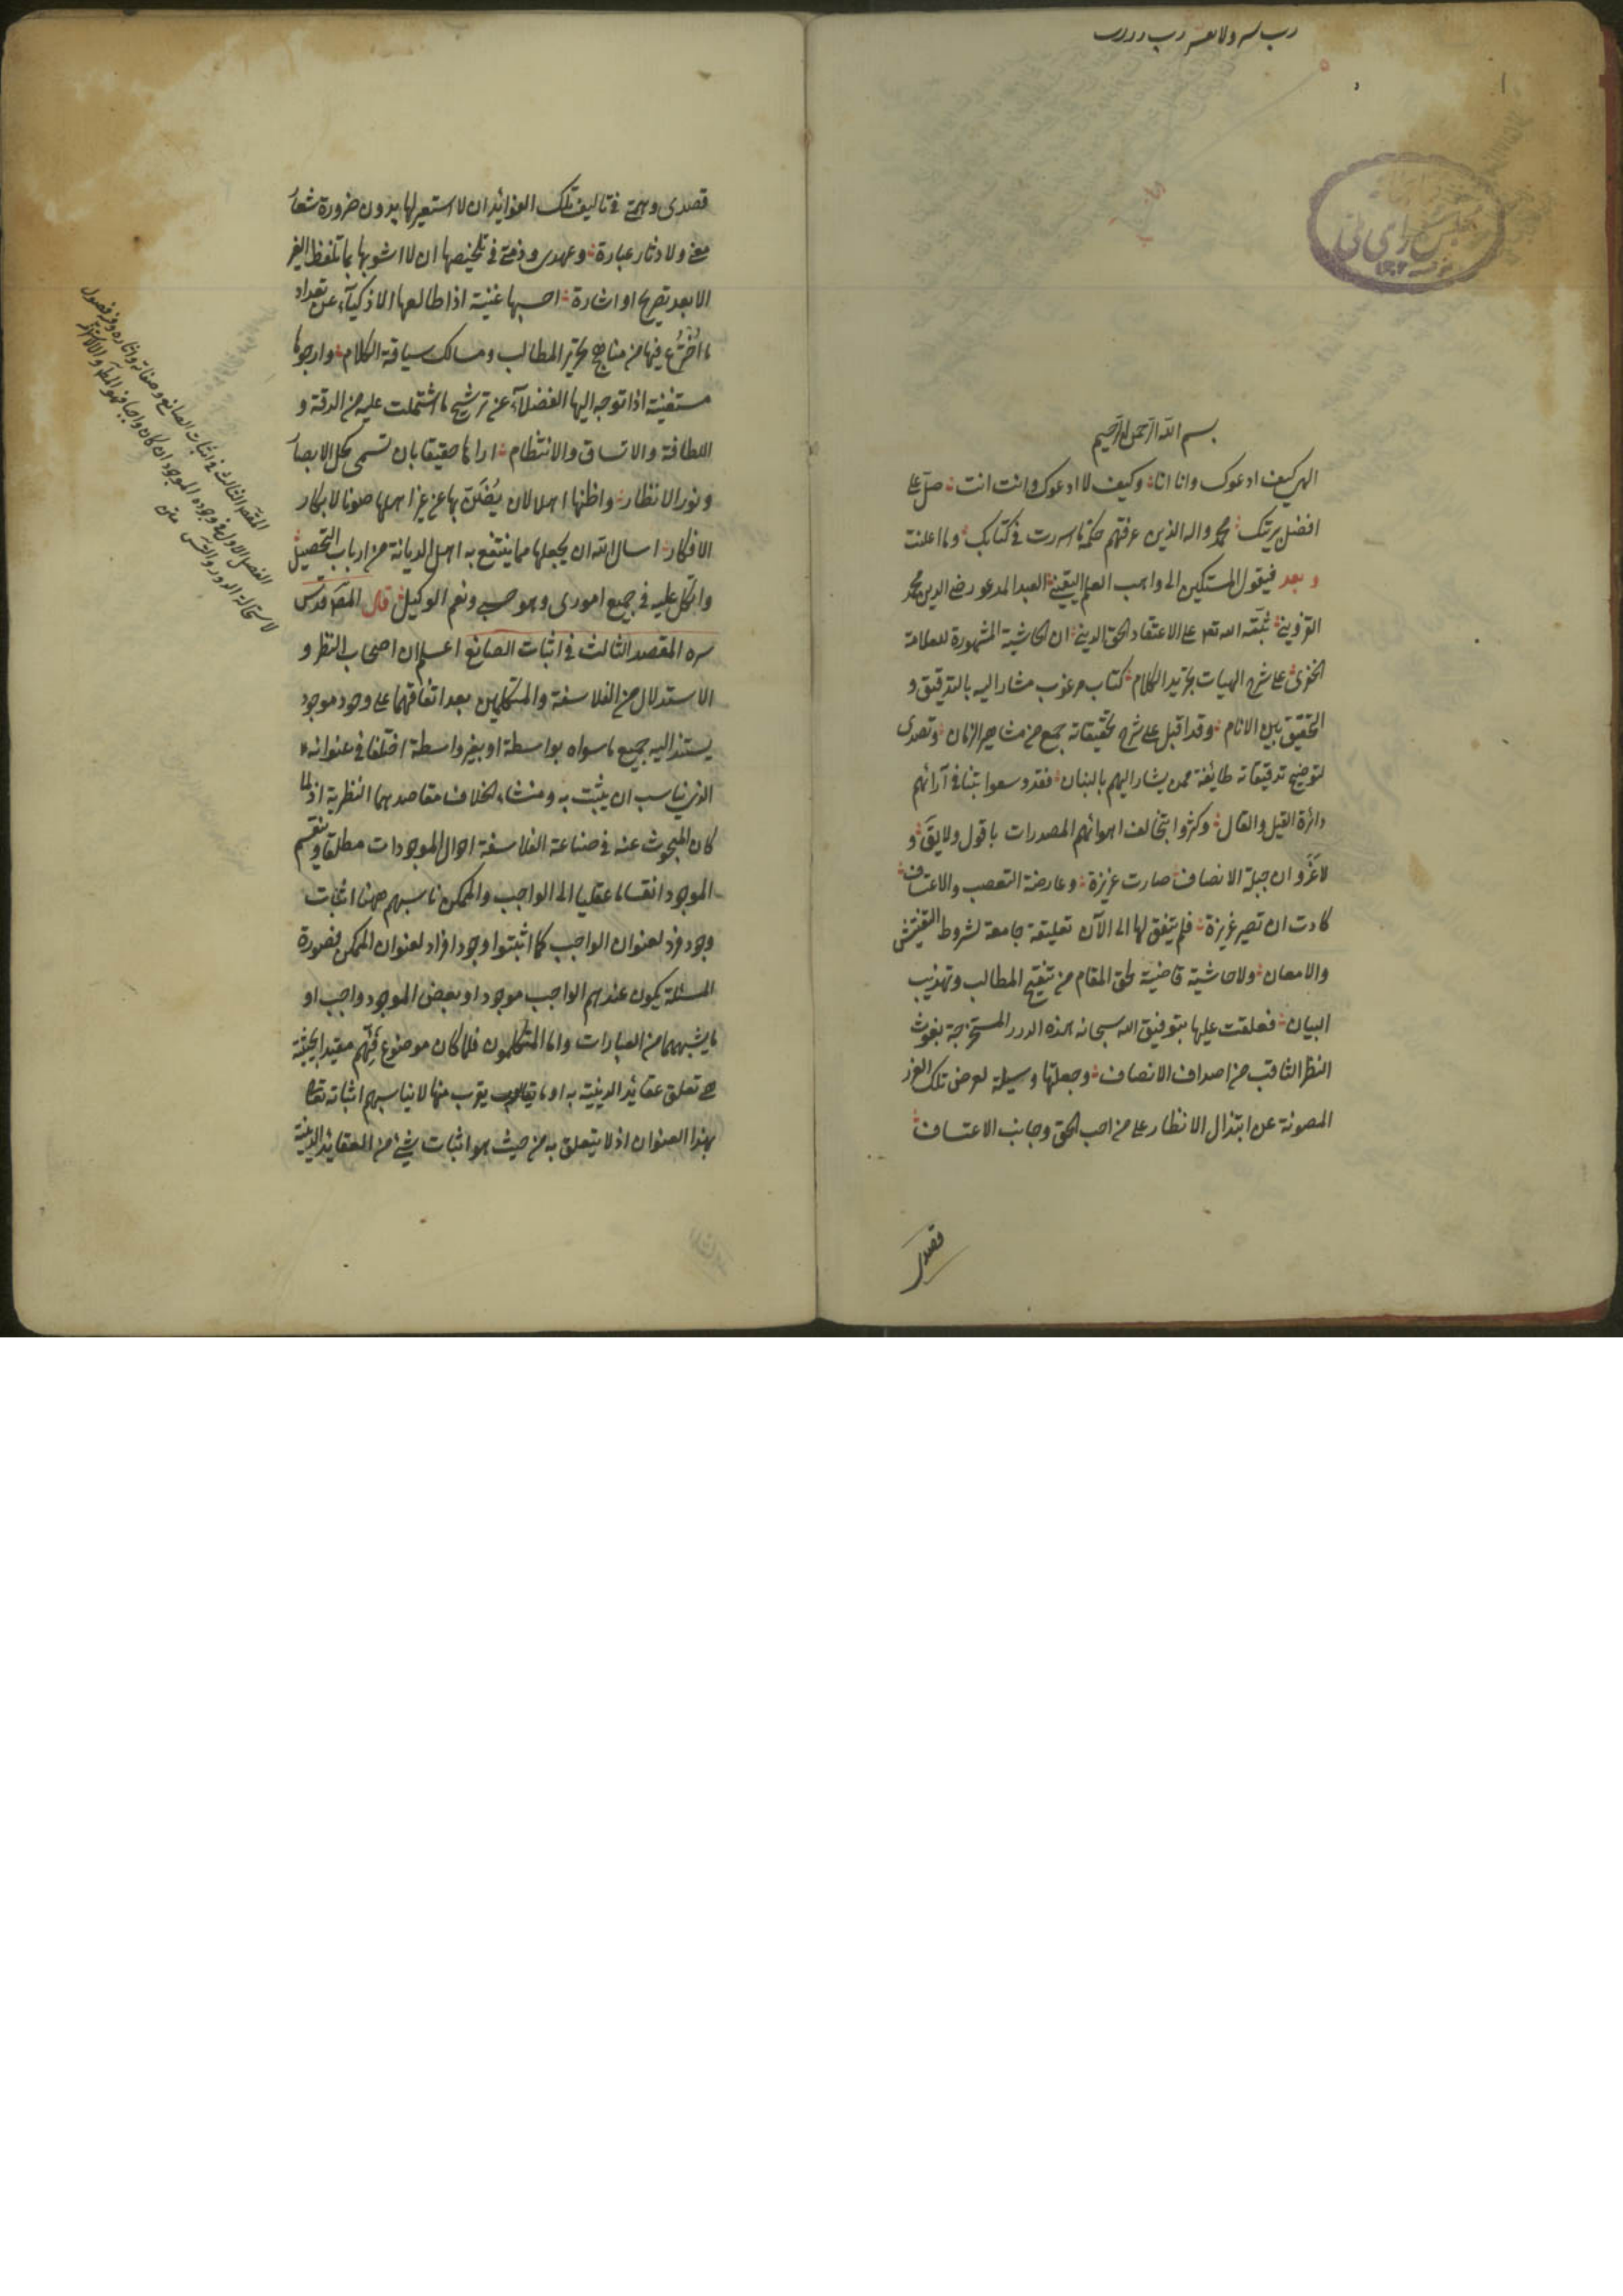 بسم الله الرحمن الرحيم
الهى كيف ادعوك وانا انا وكيف لا ادعوك وانت انت صل على
افضل بريتك محمد واله الذين عرفتهم حكمة ما اسررت فى كتابك وما اعلنت
و بعد فيقول المستكين الى واهب العلم اليقينى العبد المدعو رضى الدين محمد
القزوينى ثبته الله تعالى على الاعتقاد الحق الدينى ان الحاشية المشهورة للعلامة
الخفرى على شرح الهيات تجريد الكلام كتاب مرغوب مشار اليه بالتدقيق و
التحقيق بين الانام وقد اقبل على شرح تحقيقاته جمع من مشاهير الزمان وتصدى
لتوضيح تدقيقاته طايفة ممن يشار اليهم بالبنان فقد وسعوا بتنافى آرائهم
دائرة القيل والقال وكثروا بتخالف اهوائهم المصدرات باقول ولا يقال و
لا غرو ان جبلة الانصاف صارت عزيزة وعارضة التعصب والاعتساف
كادت ان تصير غريزة فلم يتفق لها الى الآن تعليقة جامعة لشروط التفتيش
والامعان ولا حاشية قاضية لحق المقام من تنقيح المطالب وتهذيب
البيان فعلقت عليها بتوفيق الله سبحانه هذه الدرر المستخرجة بغوث
النظر الثاقب من اصداف الانصاف وجعلتها وسيلة لعرض تلك الغرر
المصونة عن ابتذال الانظار على من احب الحق وجانب الاعتساف
قصدى
قصدى وهمتى فى تاليف تلك الفوائد ان لا استعير لها بدون ضرورة شعار
معنى ولا دثار عبارة وعهدى وذمتى فى تلخيصها ان لا اشوبها بما تلفظ الغير
الا بعد تصريح او اشارة احسبها غنية اذا طالعها الاذكياء عن تعداد
ما اخترع فيها من مناهج تحرير المطالب ومسالك سياقة الكلام وارجوها
مستغنية اذا توجه اليها الفضلاء عن ترشيح ما اشتملت عليه من الدقة و
اللطافة والاتساق والانتظام اراها حقيقا بان تسمى كحل الابصار
ونور الانظار واظنها اهلا لان يضن بها عن غير اهلها صونا لابكار
الافكار اسال الله ان يجعلها مما ينتفع به اهل الديانة من ارباب التحصيل
واتكل عليه فى جميع امورى وهو حسبى ونعم الوكيل قال المص قدس
سره المقصد الثالث فى اثبات الصانع اعلم ان اصحاب النظر و
الاستدلال من الفلاسفة والمتكلمين بعد اتفاقهما على وجود موجود
يستند اليه جميع ما سواه بواسطة او بغير واسطة اختلفا فى عنوانه
الذى يناسب ان يثبت به ومنشاء الخلاف مقاصدهما النظرية اذ لما
كان المبحوث عنه فى صناعة الفلاسفة احوال الموجودات مطلقا وينقسم
الموجود انقساما عقليا الى الواجب والممكن ناسبهم ههنا اثبات
وجود فرد لعنوان الواجب كما اثبتوا وجود افراد لعنوان الممكن فصورة
المسئلة يكون عندهم الواجب موجود او بعض الموجود واجب او
ما يشبههما من العبارات واما المتكلمون فلما كان موضوع فنهم مقيدا بحيثية
هى تعلق عقائد الدينية به او ما يقرب منها لا يناسبهم اثباته تعالى
بهذا العنوان اذ لا يتعلق به من حيث هو اثبات شئ من العقائد الدينية
المقصد الثالث فى اثبات الصانع وصفاته واثاره وفيه فصول
الفصل الاول فى وجوده الموجود ان كان واجبا فهو المط والا استلزمه
لاستحالة الدور والتس متن